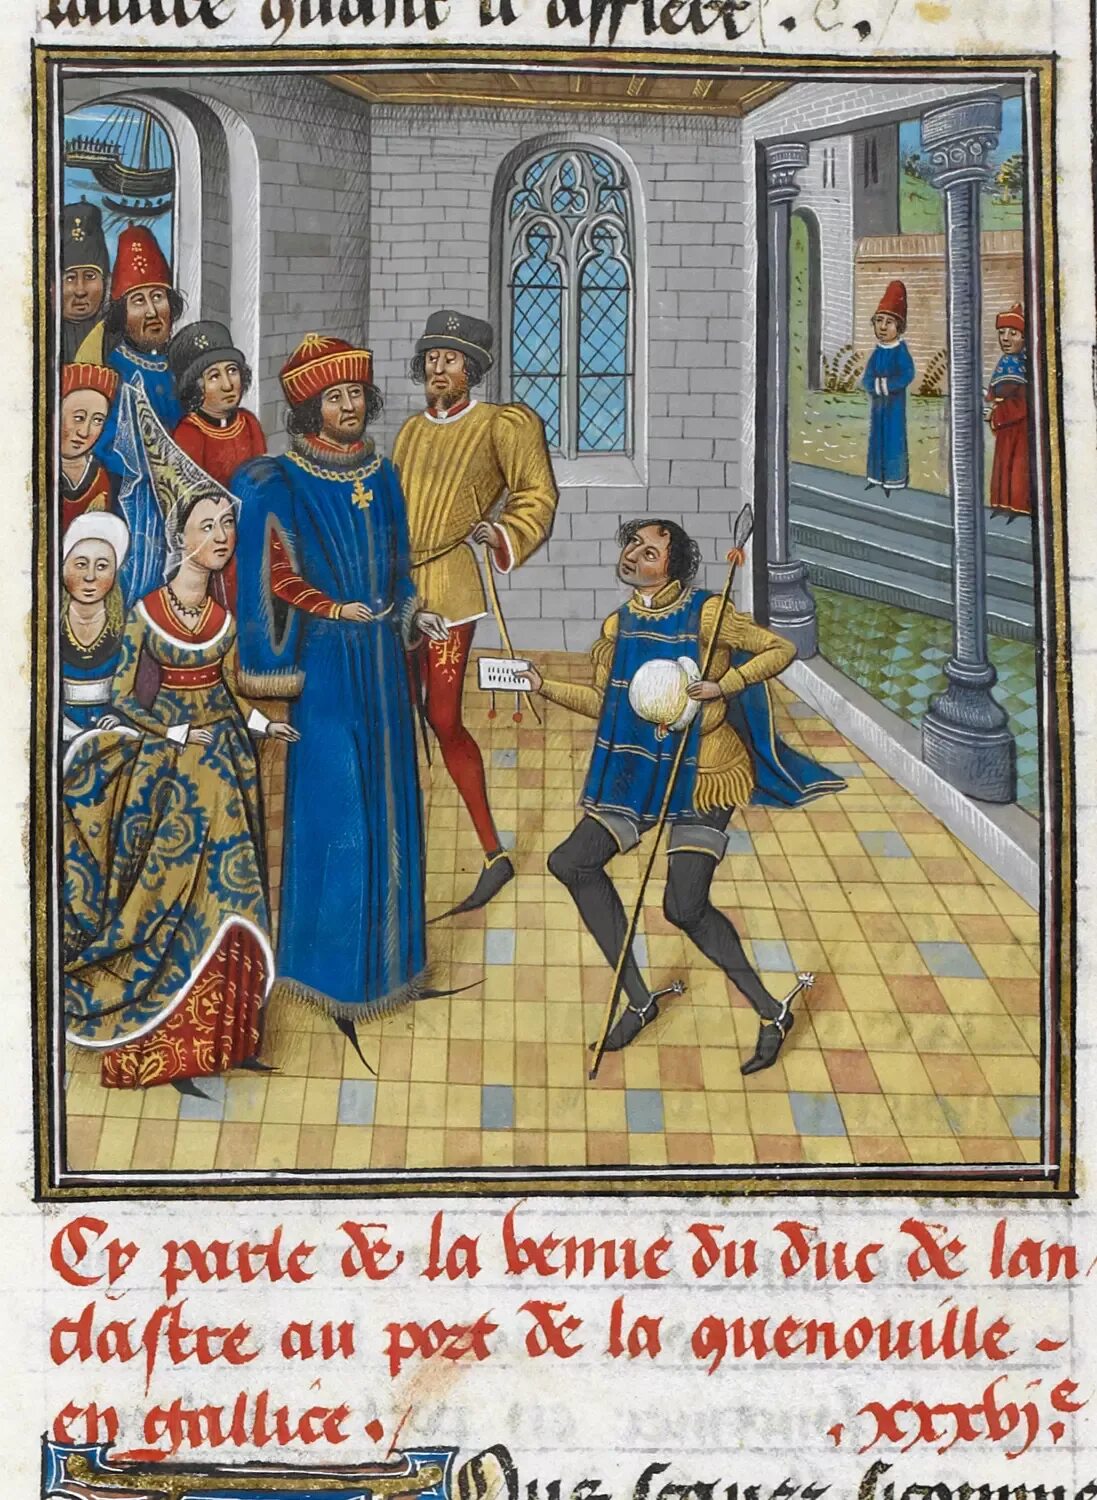 quant il affiert . c .
Cy parle de la venue du duc de lan
clastre au port de la quenouille -
en gallice . . xxxvj.e